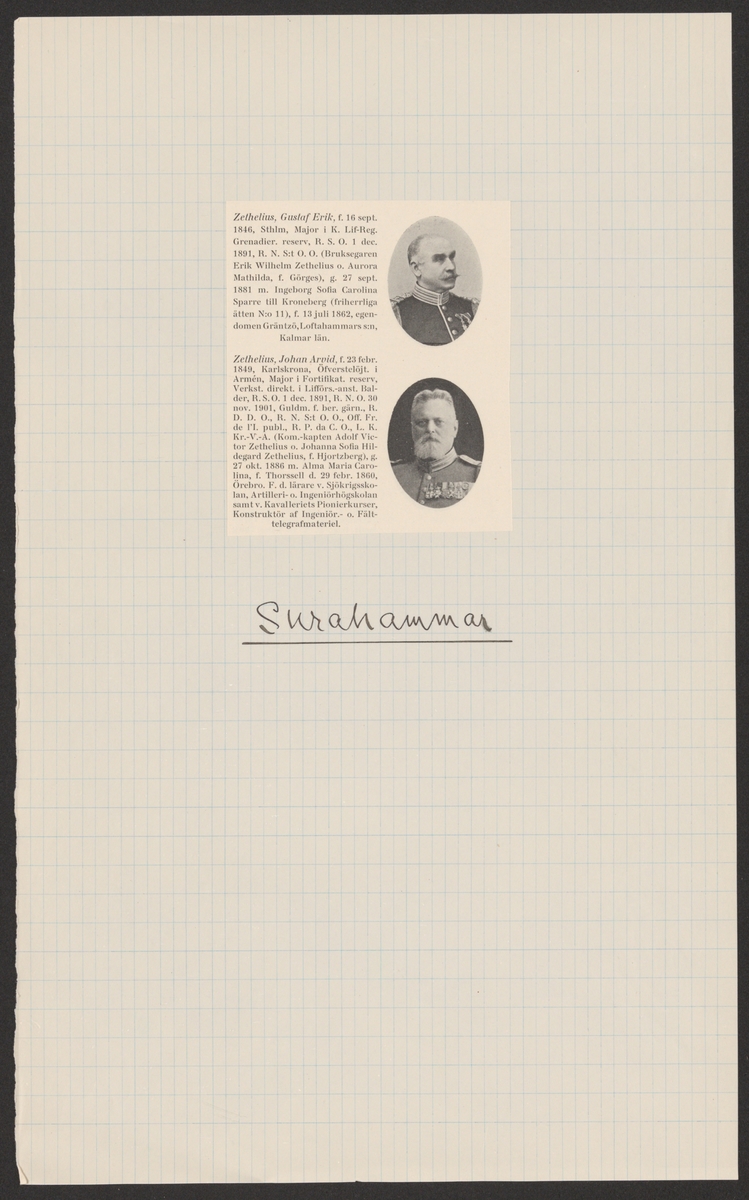 Zethelius, Gustaf Erik, f. 16 sept.
1846, Sthlm, Major i K. Lif-Reg.
Grenadier. reserv, R. S. O. 1 dec.
1891, R. N. S:t O. O. (Bruksegaren
Erik Wilhelm Zethelius o. Aurora
Mathilda, f. Görges), g. 27 sept.
1881 m. Ingeborg Sofia Carolina
Sparre till Kroneberg (friherrliga
ätten N:o 11), f. 13 juli 1862, egen-
domen Gräntzö, Loftahammars s:n,
Kalmar län.
Zethelius, Johan Arvid, f. 23 febr.
1849, Karlskrona, Öfverstelöjt. i
Armén, Major i Fortifikat. reserv,
Verkst. direkt. i Lifförs.-anst. Bal-
der, R. S. O. 1 dec. 1891, R. N. O. 30
nov. 1901, Guldm. f. ber. gärn., R.
D. D. O., R. N. S:t O. O., Off. Fr.
de l'I. publ., R. P. da C. O., L. K.
Kr.-V.-A. (Kom.-kapten Adolf Vic-
tor Zethelius o. Johanna Sofia Hil-
degard Zethelius, f. Hjortzberg), g.
27 okt. 1886 m. Alma Maria Caro-
lina, f. Thorssell d. 29 febr. 1860,
Örebro. F. d. lärare v. Sjökrigssko-
lan, Artilleri- o. Ingeniörhögskolan
samt v. Kavalleriets Pionierkurser,
Konstruktör af Ingeniör.- o. Fält-
telegrafmateriel.
Surahammar